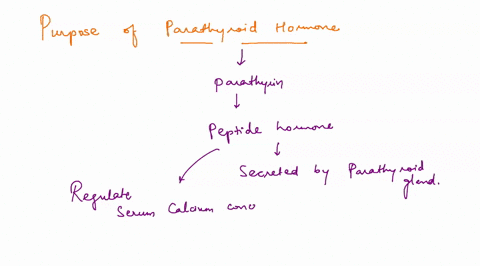 Purpose of Parathyroid Hormone
Parathyrin
Peptide hormone
Secreted by Parathyroid
gland.
Regulate
Serum Calcium conc